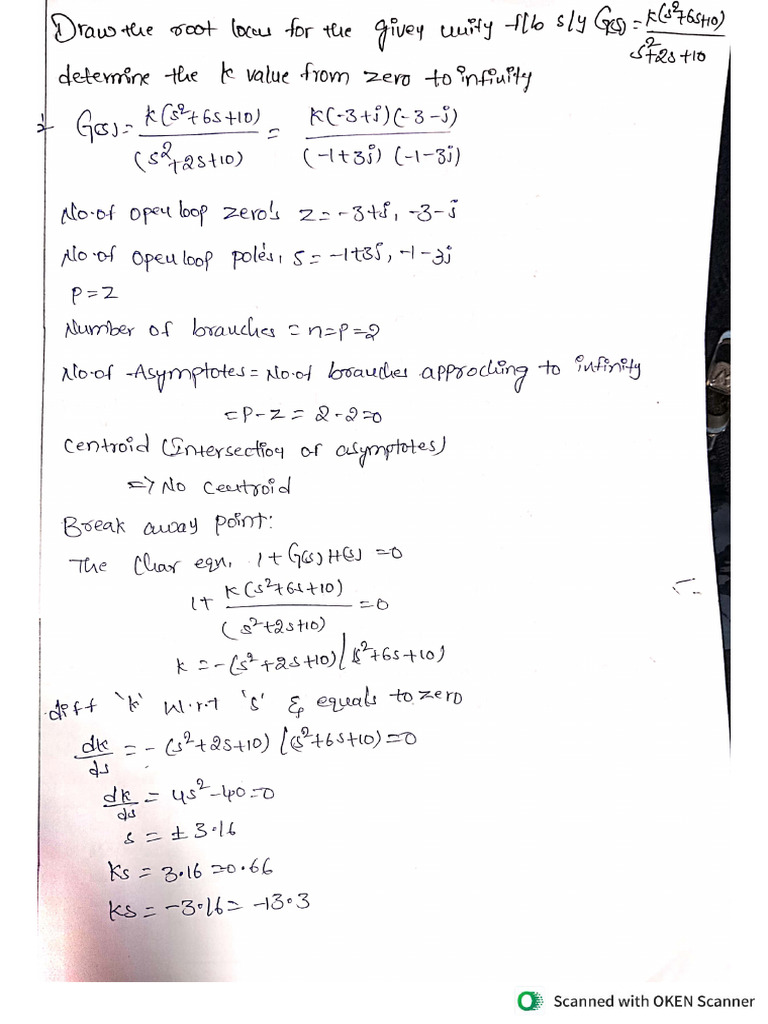 Draw the root locus for the givey unity f/b s/y G(s) = k(s²+6s+10)/s²+2s+10
determine the k value from zero to infinity
G(s) = k(s²+6s+10)/(s²+2s+10) = k(-3+j)(-3-j)/(-1+3j)(-1-3j)
No.of open loop zero's z = -3+j, -3-j
No.of open loop poles, s = -1+3j, -1-3j
p=2
Number of branches = n=p=2
No.of Asymptotes = No.of branches approching to infinity
=p-z = 2-2=0
centroid (Intersection of asymptotes)
=> No centroid
Break away point:
The Char eqn, 1+G(s)H(s) =0
1+ k(s²+6s+10)/(s²+2s+10) =0
k = -(s²+2s+10)/(s²+6s+10)
diff 'k' w.r.t 's' & equals to zero
dk/ds = -(s²+2s+10)/(s²+6s+10)=0
dk/ds = 4s²-40=0
s = ±3.16
ks = 3.16=0.66
ks = -3.16= -13.3
Scanned with OKEN Scanner